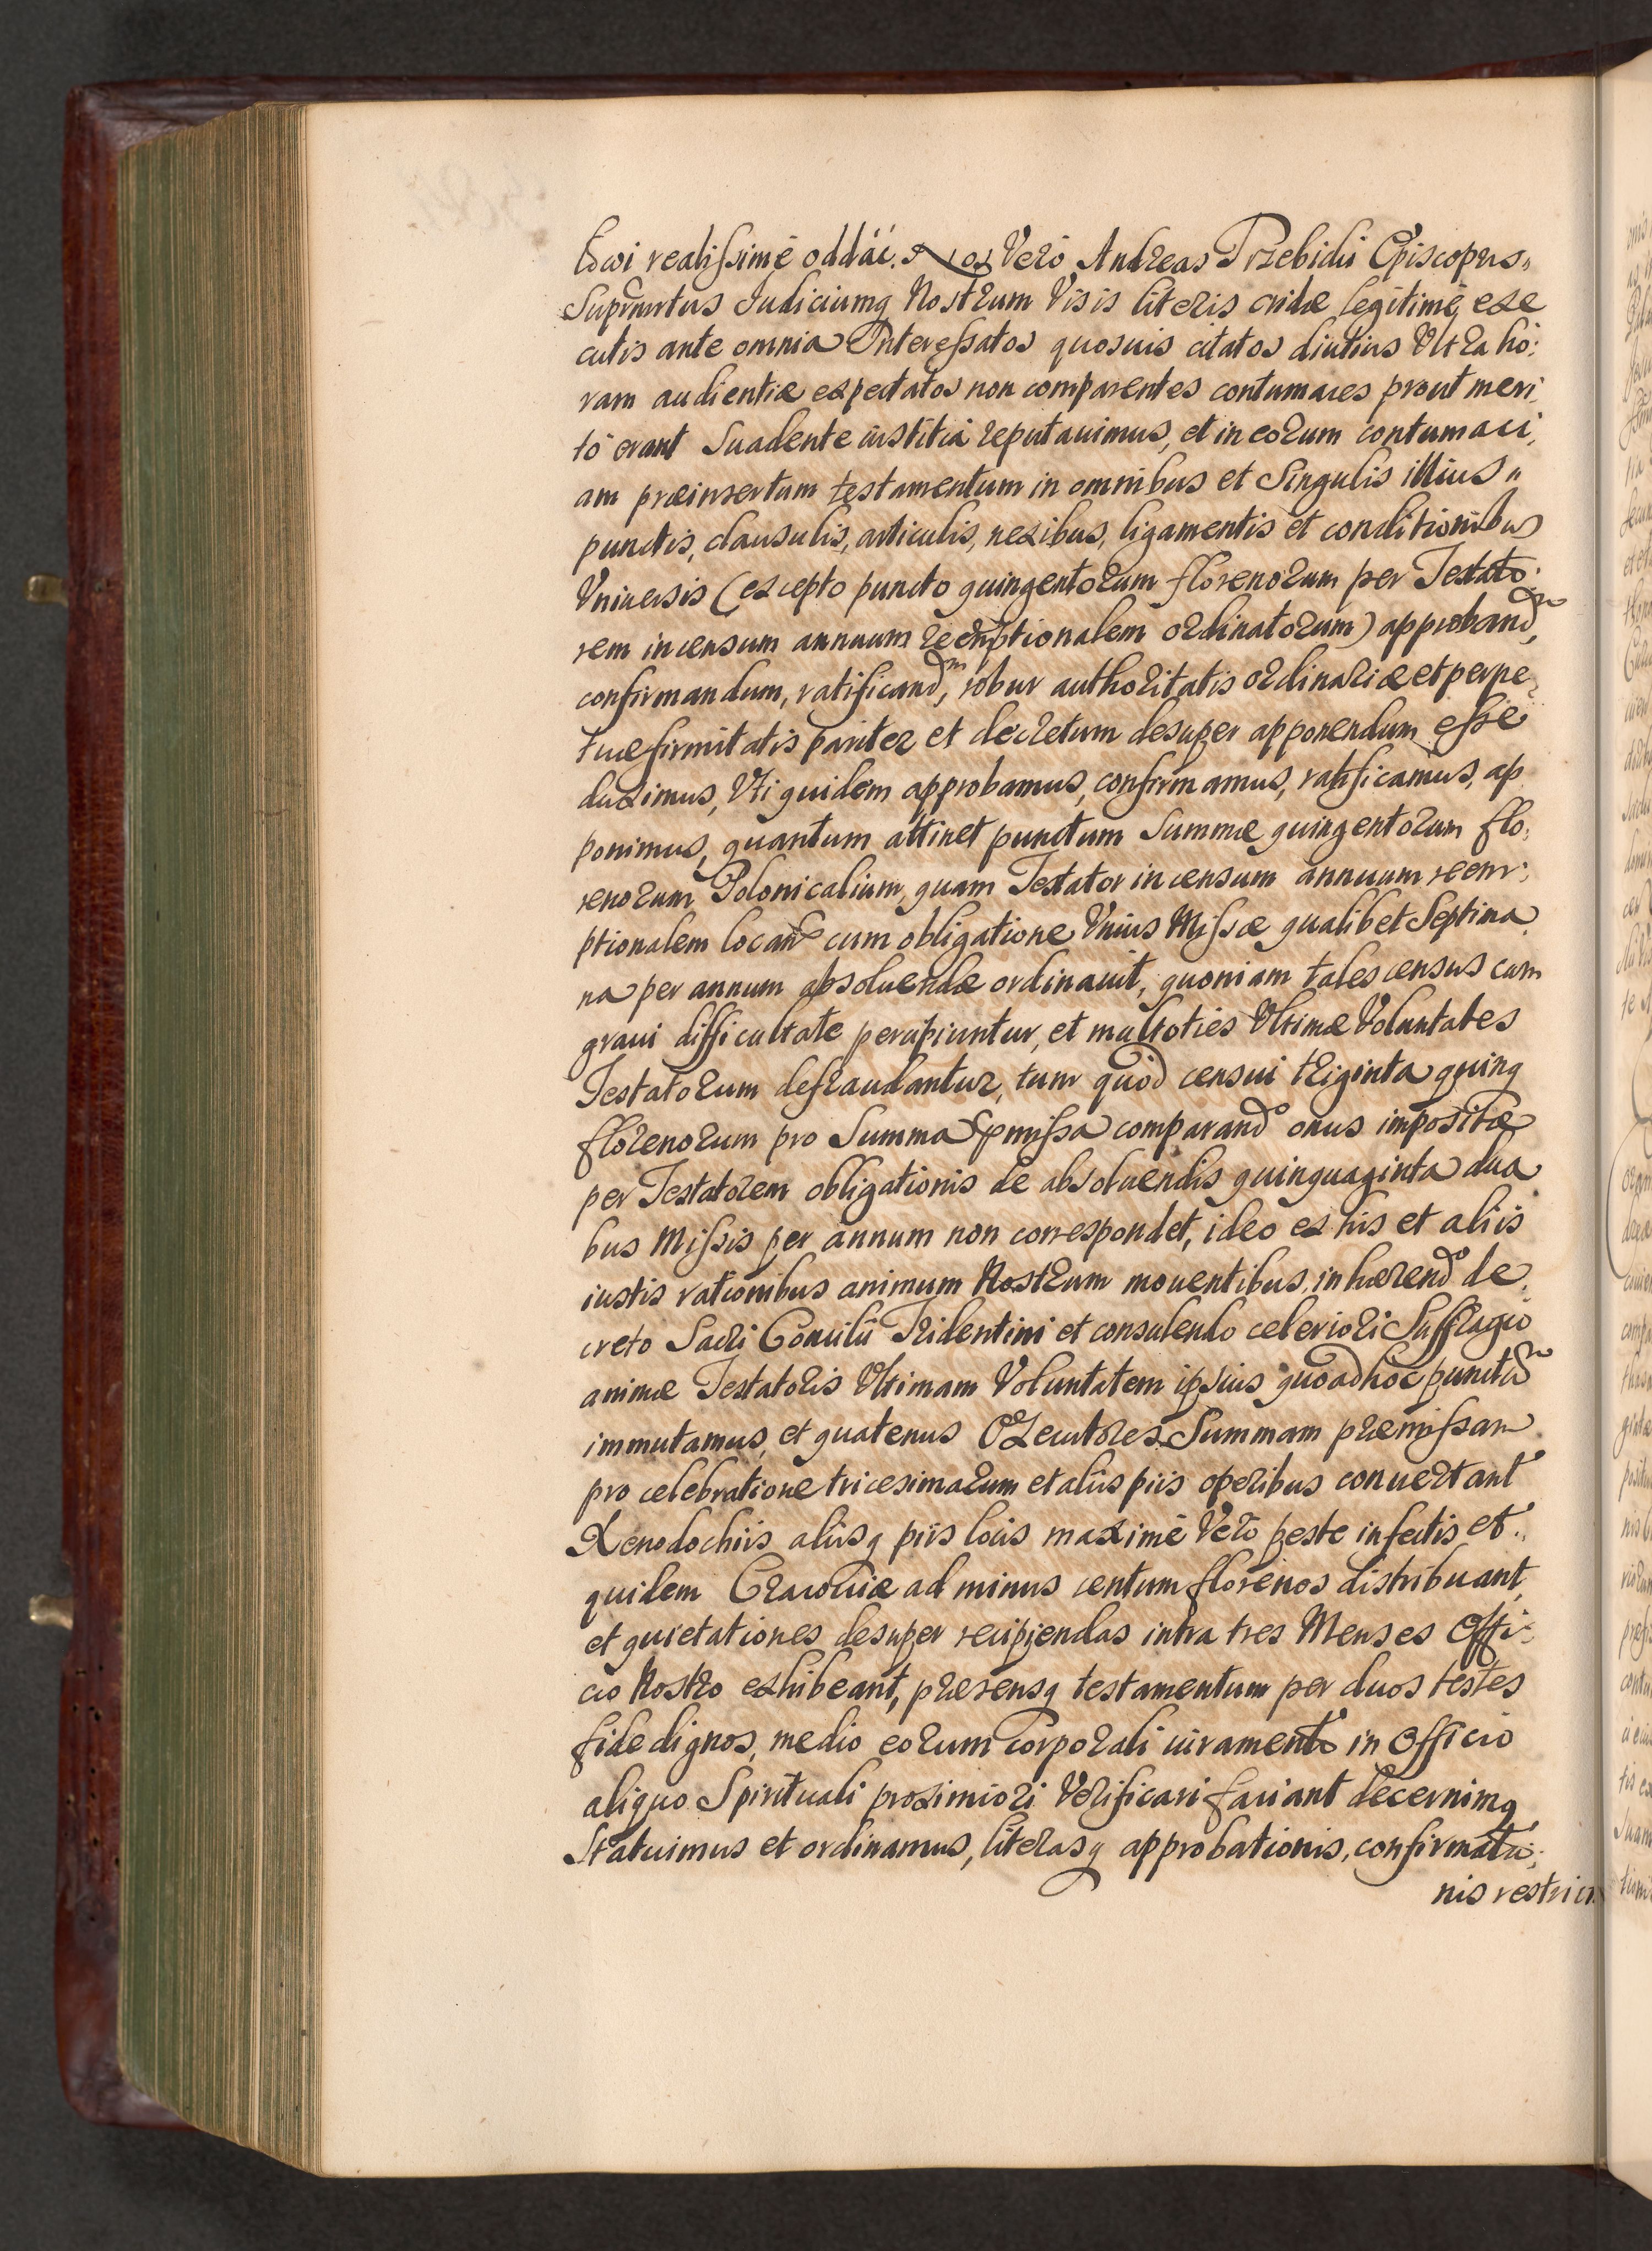 realissimè oddáć. Nos Verò Andreas Trzebicki Episcopus
Supranrtus Iudiciumq Nostrum Visis literis cridæ legitimè, exe
cutis ante omnia Interessatos quosuis citatos diutius Vltra ho:
ram audientiæ expectatos non comparentes contumaces prout meri,
tò erant Suadente iustitiâ reputauimus, et in eorum contumaci,
am præinsertum testamentum in omnibus et Singulis illius
punctis, clausulis, articulis, nexibus, ligamentis et conditionibus
Vniuersis (excepto puncto quingentorum florenorum per Testato:
rem in censum annuum reemptionalem ordinatorum) approband͂m,
confirmandum, ratificandm, robur authoritatis ordinariæ et perpe:
tuæ firmitatis pariter et decretum desuper apponendum esse
duximus, Vti quidem approbamus, confirmamus, ratificamus, ap
ponimus, quantum attinet punctum Summæ quingentorum flo:
renorum Polonicalium, quam Testator in censum annuum reem:
ptionalem locand cum obligatione Vnius Missæ qualibet Septima
na per annum absoluendæ ordinauit, quoniam tales census cum
graui difficultate percipiuntur, et multoties Vltimæ Voluntates
Testatorum defraudantur, tum quòd censui triginta quinq
florenorum pro Summa præmissa comparando onus impositæ
per Testatorem obligationis de absoluendis quinquaginta dua
bus Missis per annum non correspondet, ideo ex his et aliis
iustis rationibus animum Nostrum mouentibus, inhærendo de
creto Sacri Concilii Tridentini et consulendo celeriori Suffragio
animæ Testatoris Vltimam Voluntatem ipsius quoad hoc punctum
immutamus, et quatenus Exeuctores Summam præmissam
pro celebratione tricesimarum et aliis piis operibus conuertant
Xenodochiis aliisq piis locis maximè Verò peste infectis et
quidem Cracouiæ ad minus centum florenos distribuant,
et quietationes desuper recipiendas intra tres Menses Offi:
cio Nostro exhibeant, præsensq testamentum per duos testes
fide dignos, medio eorum corporali iuramento in Officio
aliquo Spirituali proximiori Verificari faciant decernimq
Statuimus et ordinamus, literasq approbationis, confirmatio:
nis restric